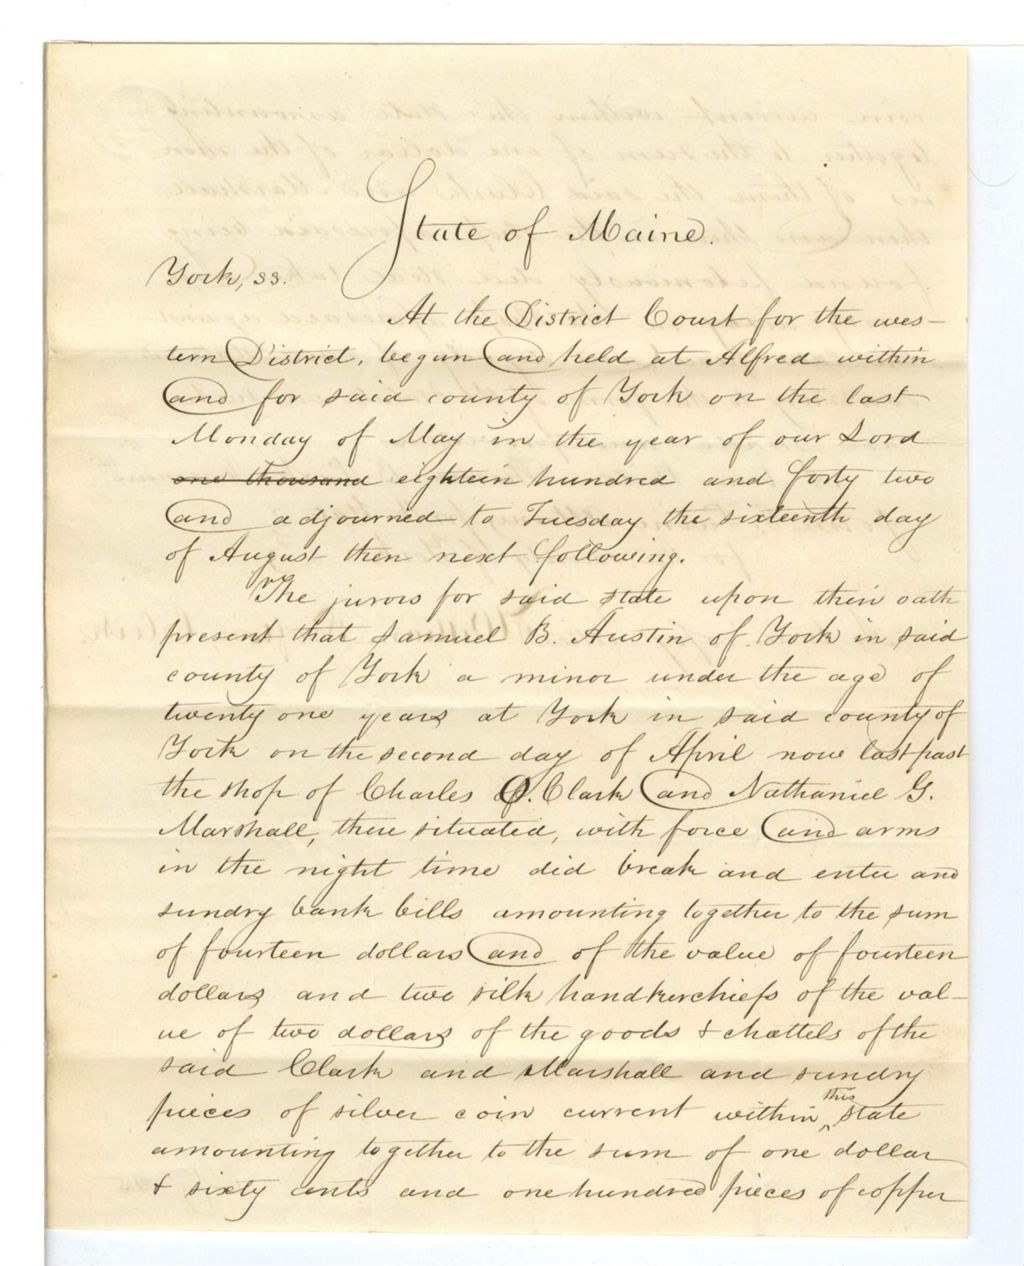 State of Maine.
York, ss.
At the District Court for the wes-
tern District, begun and held at Alfred within
and for said county of York on the last
Monday of May in the year of our Lord
one thousand eighteen hundred and forty two
and adjourned to Tuesday the sixteenth day
of August then next following.
The jurors for said state upon their oath
present that Samuel B. Austin of York in said
county of York a minor under the age of
twenty one years at York in said county of
York on the second day of April now last past
the shop of Charles O. Clark and Nathaniel G.
Marshall, there situated, with force and arms
in the night time did break and enter and
sundry bank bills amounting together to the sum
of fourteen dollars and of the value of fourteen
dollars and two silk handkerchiefs of the val-
ue of two dollars of the goods & chattels of the
said Clark and Marshall and sundry
pieces of silver coin current within this state
amounting together to the sum of one dollar
& sixty cents and one hundred pieces of copper